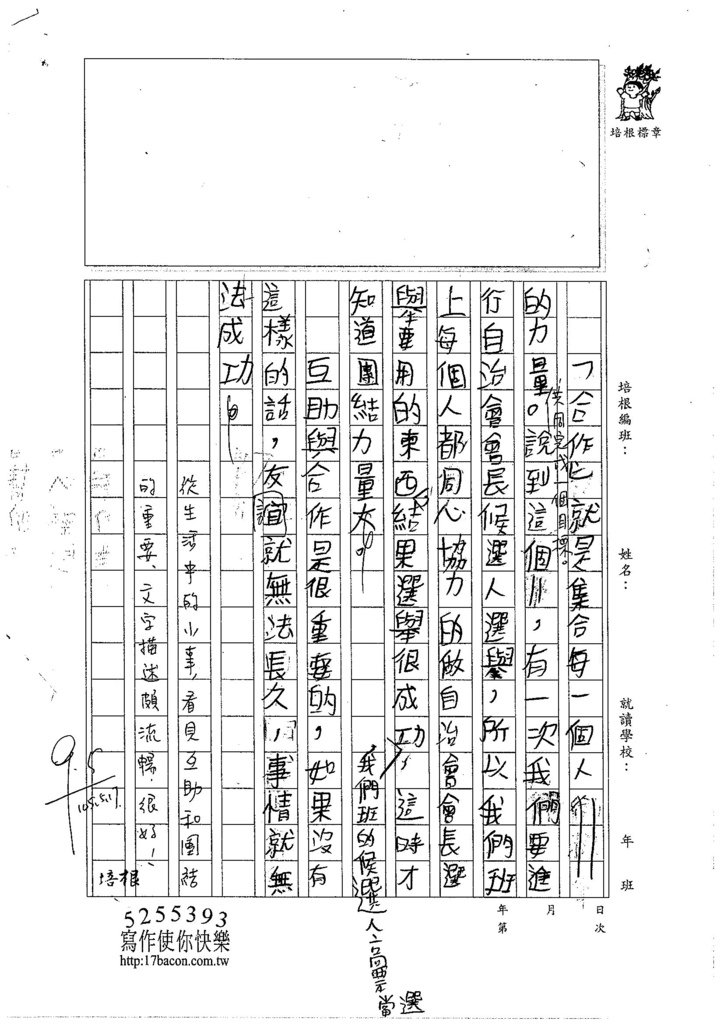 培根標章
培根編班：
姓名：
就讀學校：
年
班
日
次
月
年
第
「合作」就是集合每一個人
的力量。說到這個，有一次我們要進
供同完成一個目標。
行自治會會長候選人選舉，所以我們班
上每個人都同心協力的做自治會會長選
舉要用的東西，結果選舉很成功，這時才
我們班的候選人高票當選
知道團結力量大。
互助與合作是很重要的，如果沒有
這樣的話，友誼就無法長久，事情就無
法成功。
從生活中的小事，看見互助和團結
的重要、文字描述頗流暢，很好！
95
105.5.17
培根
5255393
寫作使你快樂
http:17bacon.com.tw